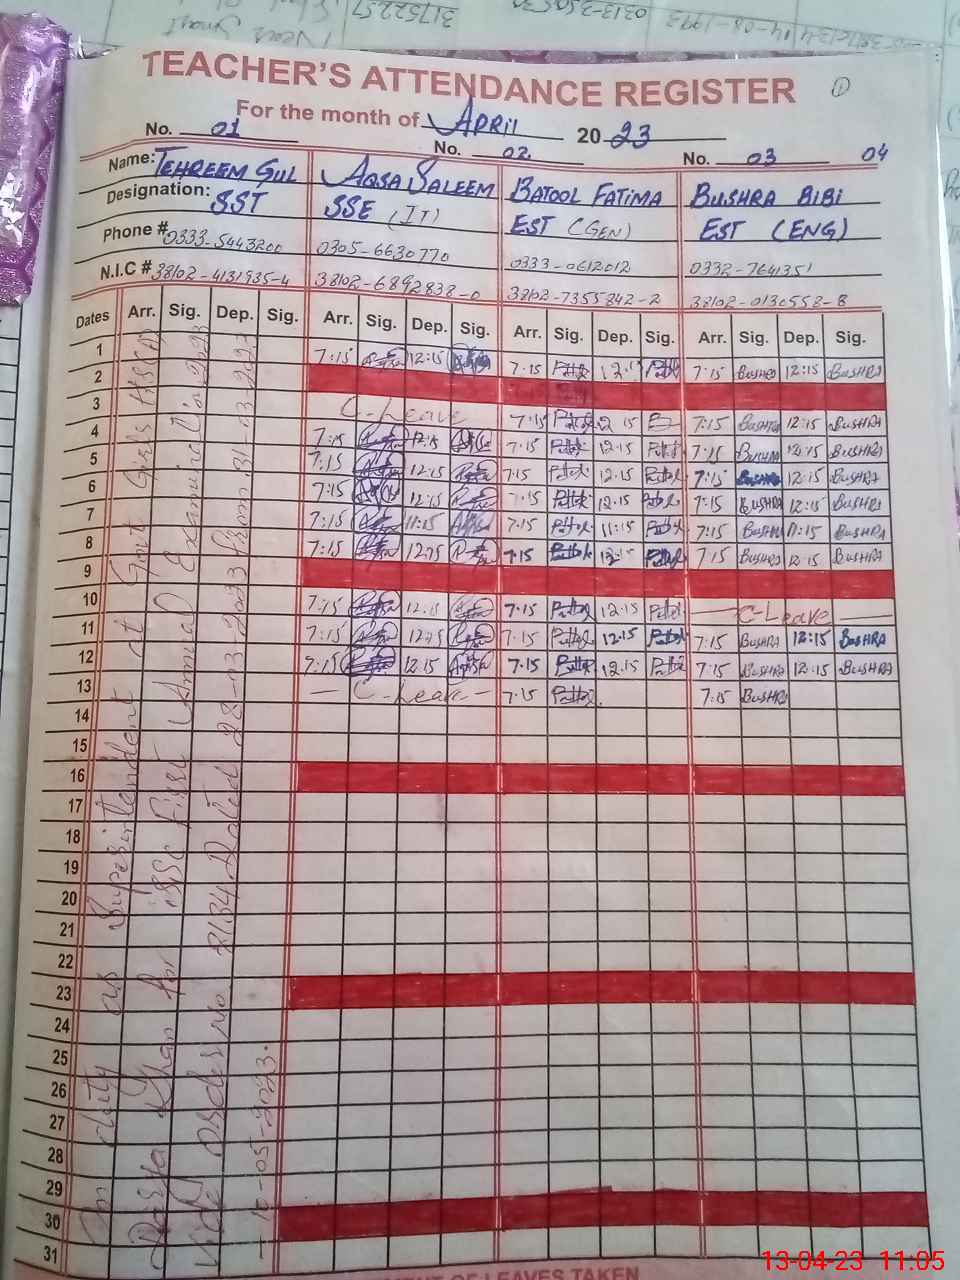 TEACHER'S ATTENDANCE REGISTER
For the month of April 2023
No. 01 No. 02 No. 03 04
Name: TEHREEM GUL AQSA SALEEM BATOOL FATIMA BUSHRA BIBI
Designation: SST SSE (IT) EST (GEN) EST (ENG)
Phone # 0333-5443200 0305-6630770 0333-0612012 0332-7641351
N.I.C # 38102-4131935-4 38102-6892838-0 38102-7355842-2 38102-0130558-8
Dates Arr. Sig. Dep. Sig. Arr. Sig. Dep. Sig. Arr. Sig. Dep. Sig. Arr. Sig. Dep. Sig.
1 7:15 12:15 7:15 12:15 7:15 BUSHRA 12:15 BUSHRA
2
3 C-Leave 7:15 12:15 7:15 BUSHRA 12:15 BUSHRA
4 7:15 12:15 7:15 12:15 7:15 BUSHRA 12:15 BUSHRA
5 7:15 12:15 7:15 12:15 7:15 BUSHRA 12:15 BUSHRA
6 7:15 12:15 7:15 12:15 7:15 BUSHRA 12:15 BUSHRA
7 7:15 11:15 7:15 11:15 7:15 BUSHRA 11:15 BUSHRA
8 7:15 12:15 7:15 12:15 7:15 BUSHRA 12:15 BUSHRA
9
10 7:15 12:15 7:15 12:15 C-Leave
11 7:15 12:15 7:15 12:15 7:15 BUSHRA 12:15 BUSHRA
12 7:15 12:15 7:15 12:15 7:15 BUSHRA 12:15 BUSHRA
13 C-Leave 7:15 7:15 BUSHRA
14
15
16
17
18
19
20
21
22
23
24
25
26
27
28
29
30
31
On duty as Superintendent at Govt Girls
Khan for SSC First Annual Examination 2023
vide order no 2134 Dated 28-03-2023 from 31-03-2023
10-05-2023.
OF LEAVES TAKEN
13-04-23 11:05